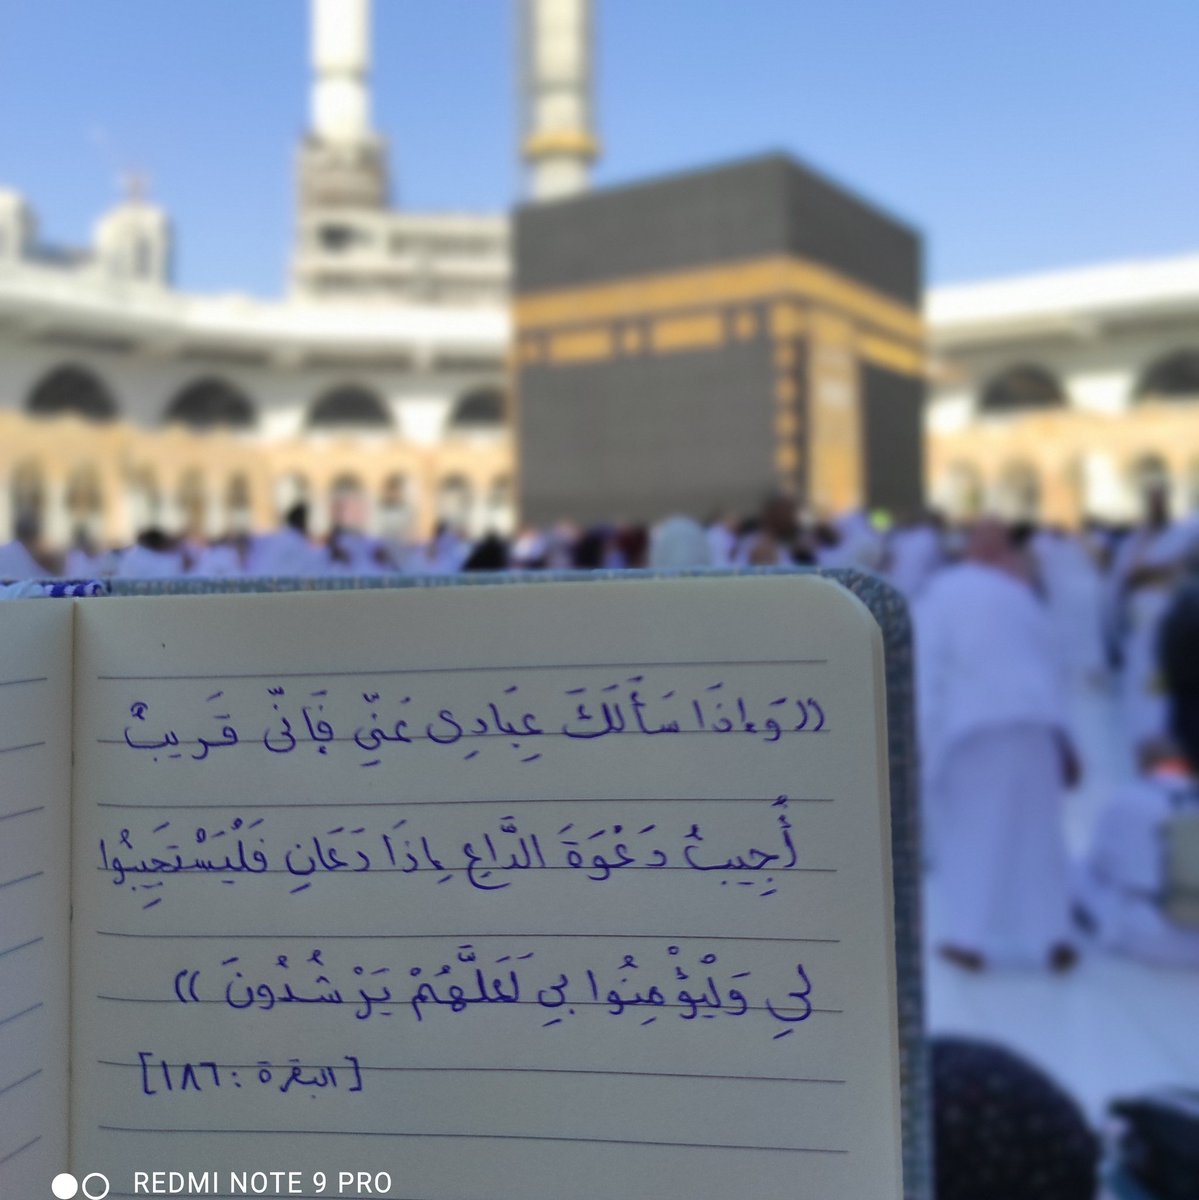 ((وَإِذَا سَأَلَكَ عِبَادِي عَنِّي فَإِنِّي قَرِيبٌ
أُجِيبُ دَعْوَةَ الدَّاعِ إِذَا دَعَانِ فَلْيَسْتَجِيبُوا
لِي وَلْيُؤْمِنُوا بِي لَعَلَّهُمْ يَرْشُدُونَ))
[البقرة: ١٨٦]
REDMI NOTE 9 PRO